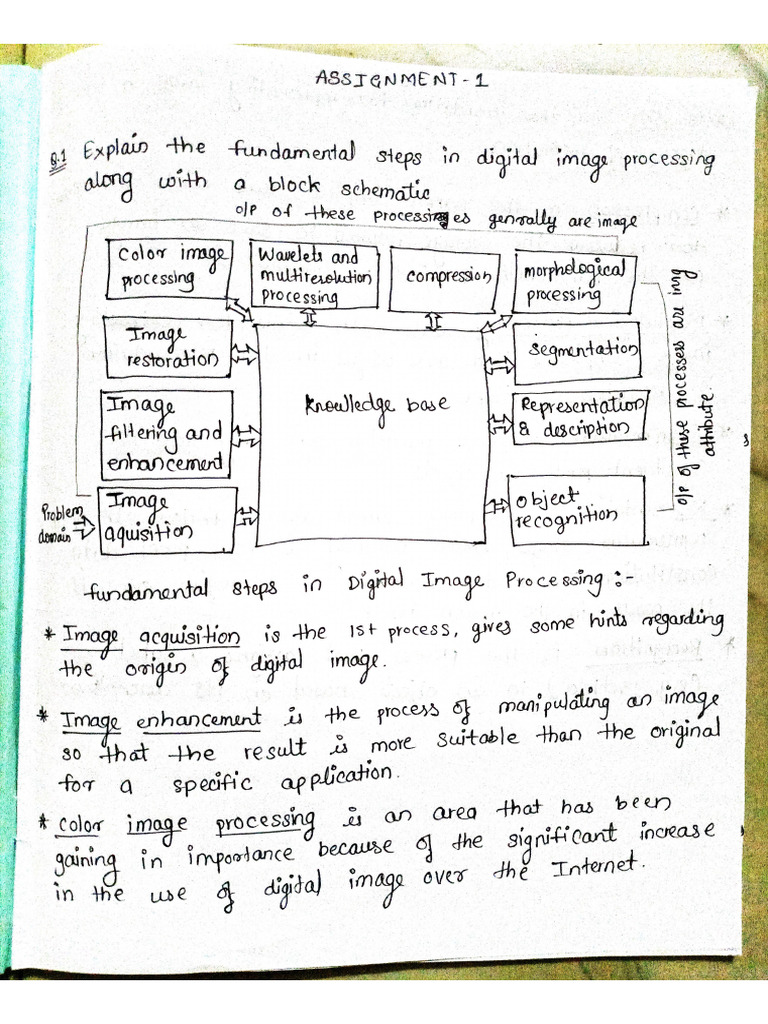 ASSIGNMENT-1
Q.1 Explain the fundamental steps in digital image processing
along with a block schematic.
o/p of these processinges genrally are image
Color image
processing
Wavelets and
multiresolution
processing
compression
morphological
processing
Image
restoration
segmentation
Knowledge base
Image
filtering and
enhancement
Representation
& description
Image
aquisition
object
recognition
Problem
domain
o/p of these processers are inng
attribute.
fundamental steps in Digital Image Processing :-
* Image acquisition is the 1st process, gives some hints regarding
the origin of digital image.
* Image enhancement is the process of manipulating an image
so that the result is more suitable than the original
for a specific application.
* Color image processing is an area that has been
gaining in importance because of the significant increase
in the use of digital image over the Internet.